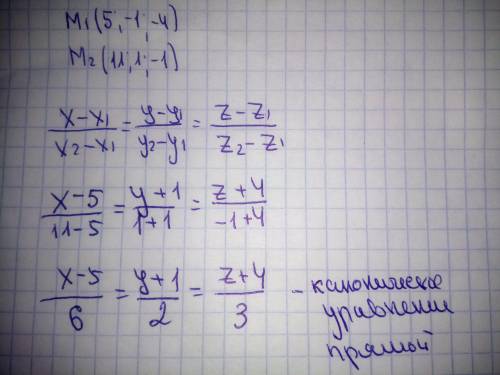 M1(5;-1;-4)
M2(11;1;-1)
x-x1/x2-x1 = y-y1/y2-y1 = z-z1/z2-z1
x-5/11-5 = y+1/1+1 = z+4/-1+4
x-5/6 = y+1/2 = z+4/3 - каноническое
уравнении
прямой